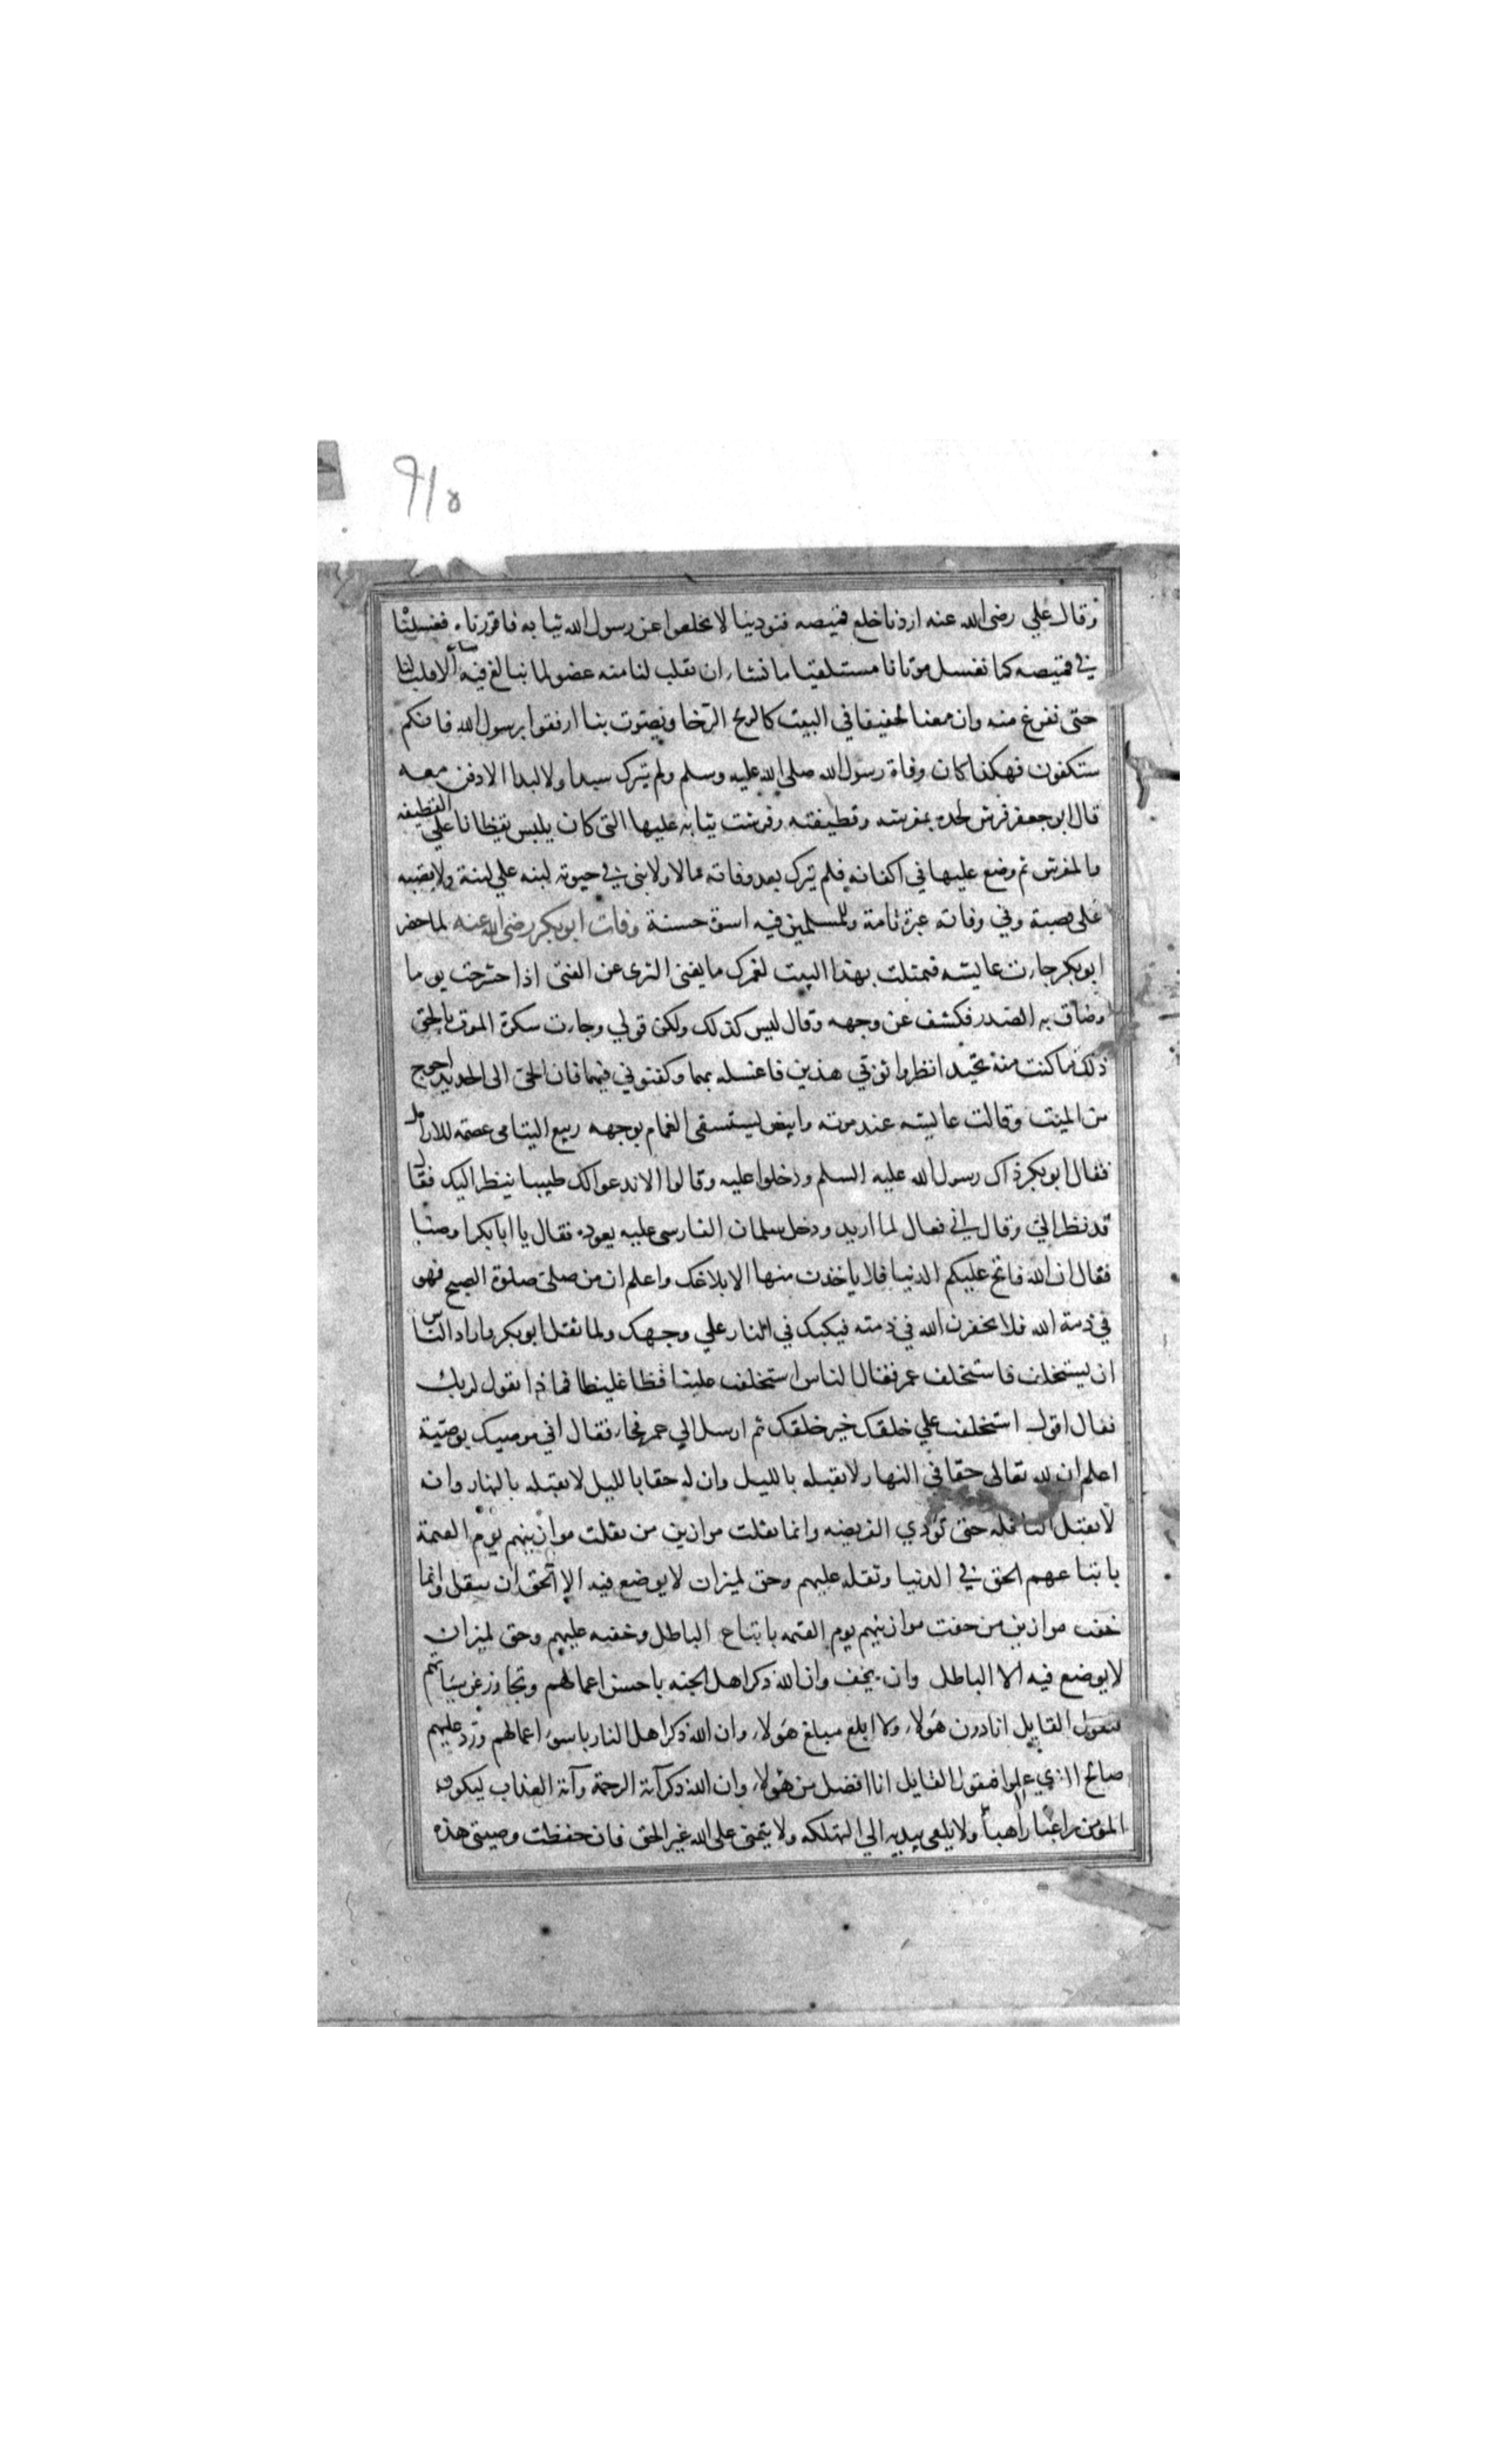 ٩١٥
وقال علي رضى الله عنه اردنا خلع قميصه فنودينا لا تخلعوا عن رسول الله ثيابه فاقررناه فغسلنا
في قميصه كما نغسل موتانا مستلقيا ما نشاء ان نقلب لنا منه عضو لما نبالغ فيه الا قلب لنا
حتى نفرغ منه وان معنا لحفيفا في البيت كالريح الرخا ويصوت بنا ارفقوا برسول الله فانكم
ستكفون فهكذا كان وفاة رسول الله صلى الله عليه وسلم ولم يترك سبدا ولا لبدا الا دفن معه
قال ابو جعفر فرش لحده بمفرشه وقطيفته وفرشت ثيابه عليها التى كان يلبس يقظانا على القطيفه
والمفرش ثم وضع عليها في اكفانه فلم يترك بعد وفاته مالا ولا بنى في حيوته لبنه علي لبنة ولا قصبه
على قصبة وفي وفاته عبرة تامة وللمسلمين فيه اسوة حسنة وفات ابوبكر رضى الله عنه لما حضر
ابوبكر جاءت عايشه فتمثلت بهذا البيت لعمرك ما يغنى الثرى عن الفتى اذا حشرجت يوما
وضاق به الصدر فكشف عن وجهه وقال ليس كذلك ولكن قولي وجاءت سكرة الموت بالحق
ذلك ما كنت منه تحيد انظروا ثوبي هذين فاغسلوهما وكفنوني فيهما فان الحى الى الجديد احوج
من الميت وقالت عايشه عند موته وابيض يستسقى الغمام بوجهه ربيع اليتامى عصمة للارامل
فقال ابوبكر ذاك رسول الله عليه السلم ودخلوا عليه وقالوا الا ندعوا لك طبيبا ينظر اليك فقال
قد نظر الي وقال اني فعال لما اريد ودخل سلمان الفارسى عليه يعوده فقال يا ابا بكر اوصنا
فقال ان الله فاتح عليكم الدنيا فلا ياخذن منها الا بلاغك واعلم ان من صلى صلوة الصبح فهو
في ذمة الله فلا تخفرن الله في ذمته فيكبك في النار علي وجهك ولما ثقل ابوبكر واراد الناس
ان يستخلف فاستخلف عمر فقال الناس استخلفت علينا فظا غليظا فماذا تقول لربك
فقال اقول استخلفت علي خلقك خير خلقك ثم ارسل الي عمر فجاء فقال اني موصيك بوصية
اعلم ان لله تعالى حقا في النهار لا يقبله بالليل وان له حقا بالليل لا يقبله بالنهار وانه
لا يقبل النافله حتى تؤدي الفريضه وانما ثقلت موازين من ثقلت موازينهم يوم القيمة
باتباعهم الحق في الدنيا وثقله عليهم وحق لميزان لا يوضع فيه الا الحق ان يثقل وانما
خفت موازين من خفت موازينهم يوم القيمه باتباع الباطل وخفته عليهم وحق لميزان
لا يوضع فيه الا الباطل وان يخف وان الله ذكر اهل الجنه باحسن اعمالهم وتجاوز عن سياتهم
فيقول القايل انا دون هولاء ولا ابلغ مبلغ هولاء وان الله ذكر اهل النار باسوء اعمالهم ورد عليهم
صالح الذي عملوا فيقول القايل انا افضل من هولاء وان الله ذكر آية الرحمة وآية العذاب ليكون
المؤمن راغبا راهبا ولا يلقى بيديه الي التهلكه ولا يتمنى على الله غير الحق فان حفظت وصيتى هذه